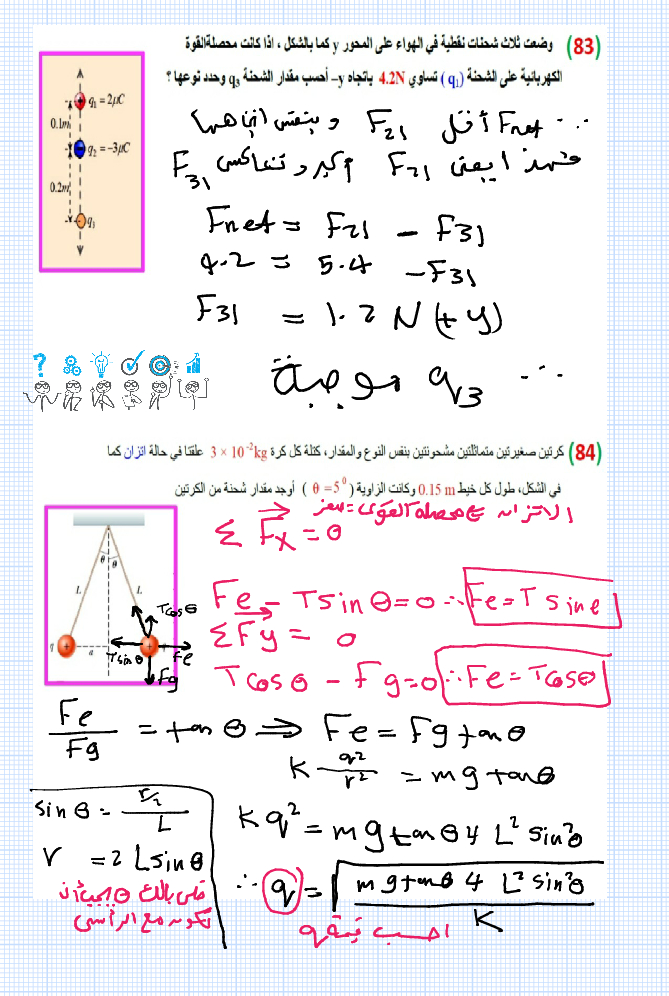 (83) وضعت ثلاث شحنات نقطية في الهواء على المحور y كما بالشكل ، اذا كانت محصلةالقوة
الكهربائية على الشحنة (q₁) تساوي 4.2N باتجاه y– أحسب مقدار الشحنة q₃ وحدد نوعها ؟
q₁ = 2μC
0.1m
q₂ = –3μC
0.2m
q₃
∴ Fnet أقل F21 وبنفس اتجاهها
فهذا يعني F21 أكبر وتعاكس F31
Fnet = F21 – F31
4.2 = 5.4 – F31
F31 = 1.2 N (+y)
∴ q3 موجبة
(84) كرتين صغيرتين متماثلتين مشحونتين بنفس النوع والمقدار، كتلة كل كرة 3 × 10⁻²kg علقتا في حالة اتزان كما
في الشكل، طول كل خيط 0.15 m وكانت الزاوية ( θ =5⁰ ) أوجد مقدار شحنة من الكرتين
الاتزان ⇒ محصلة القوى = صفر
Σ Fx = 0
θ θ
L L
Tcosθ
q
a
Tsinθ
Fe
Fg
Fe – Tsinθ = 0 ∴ Fe = T sine
ΣFy = 0
Tcosθ – Fg = 0 ∴ Fe = Tcosθ
Fe/Fg = tanθ ⇒ Fe = Fg tanθ
K q²/r² = mg tanθ
sinθ = r/2 / L
r = 2 L sinθ
K q² = mg tanθ 4 L² sin²θ
∴ q = √(mg tanθ 4 L² sin²θ / K)
خلي بالك θ يجب أن
تكون مع الرأسي
احسب قيمة q